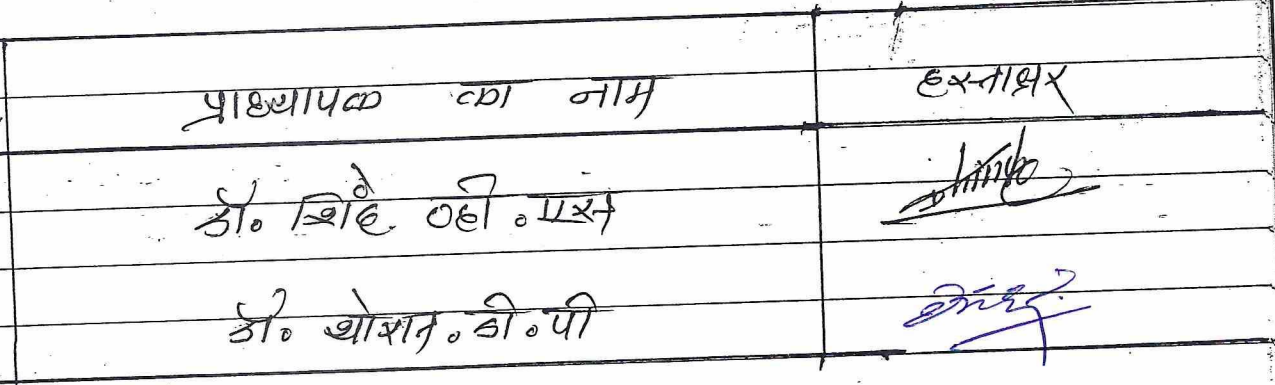 प्राध्यापक का नाम हस्ताक्षर
डॉ. शिंदे व्ही.एस
डॉ. थोरात.डी.पी